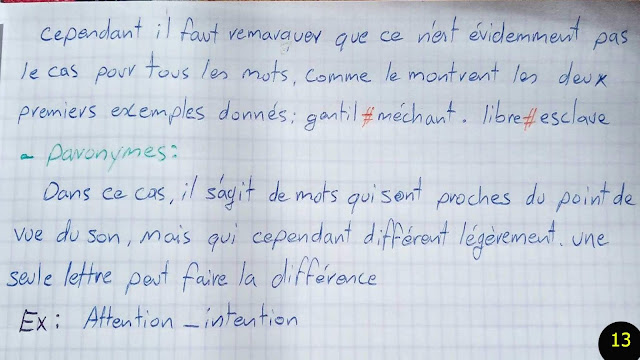 cependant il faut remarquer que ce n'est évidemment pas
le cas pour tous les mots, comme le montrent les deux
premiers exemples donnés; gantil # méchant. libre # esclave
- paronymes:
Dans ce cas, il s'agit de mots qui sont proches du point de
vue du son, mais qui cependant différent légèrement. une
seule lettre peut faire la différence
Ex: Attention _ intention
13